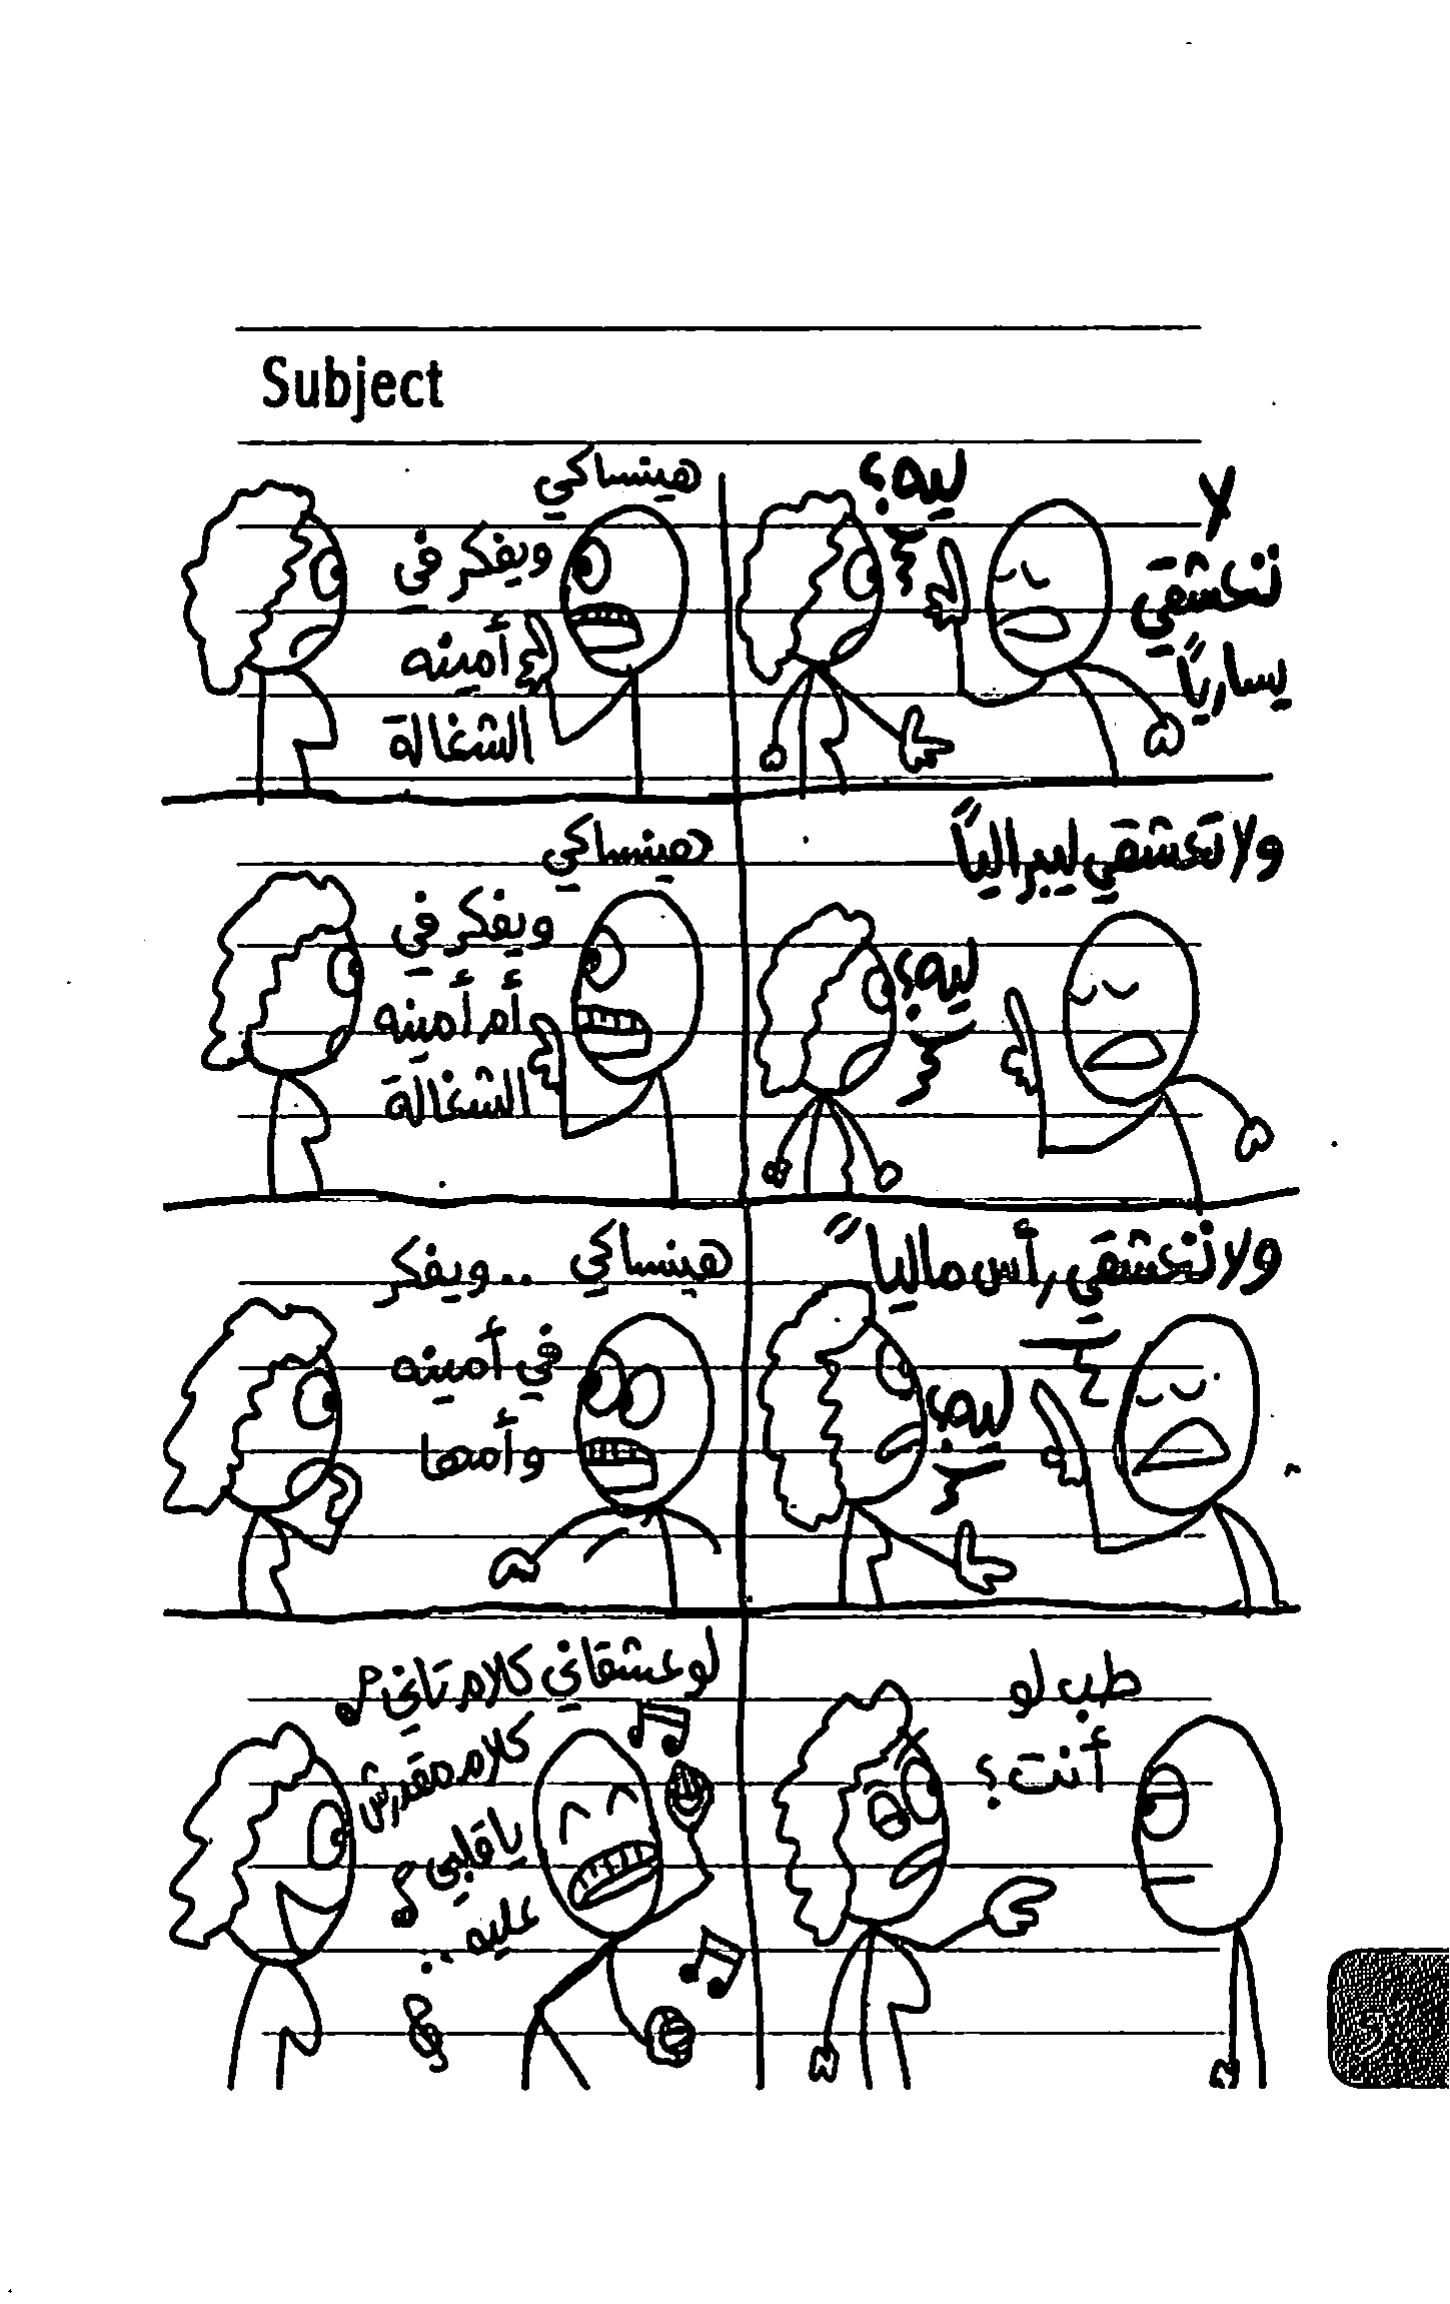 Subject
لا
تعشقي
يسارياً
ليه؟
هينساكي
ويفكر في
أمينه
الشغالة
ولا تعشقي ليبرالياً
ليه؟
هينساكي
ويفكر في
أم أمينه
الشغالة
ولا تعشقي رأس مالياً
ليه؟
هينساكي .. ويفكر
في أمينه
وأمها
طب لو
أنت؟
لو عشقاني كلام تاني
كلام مقدرش
يا قلبي
عليه ..